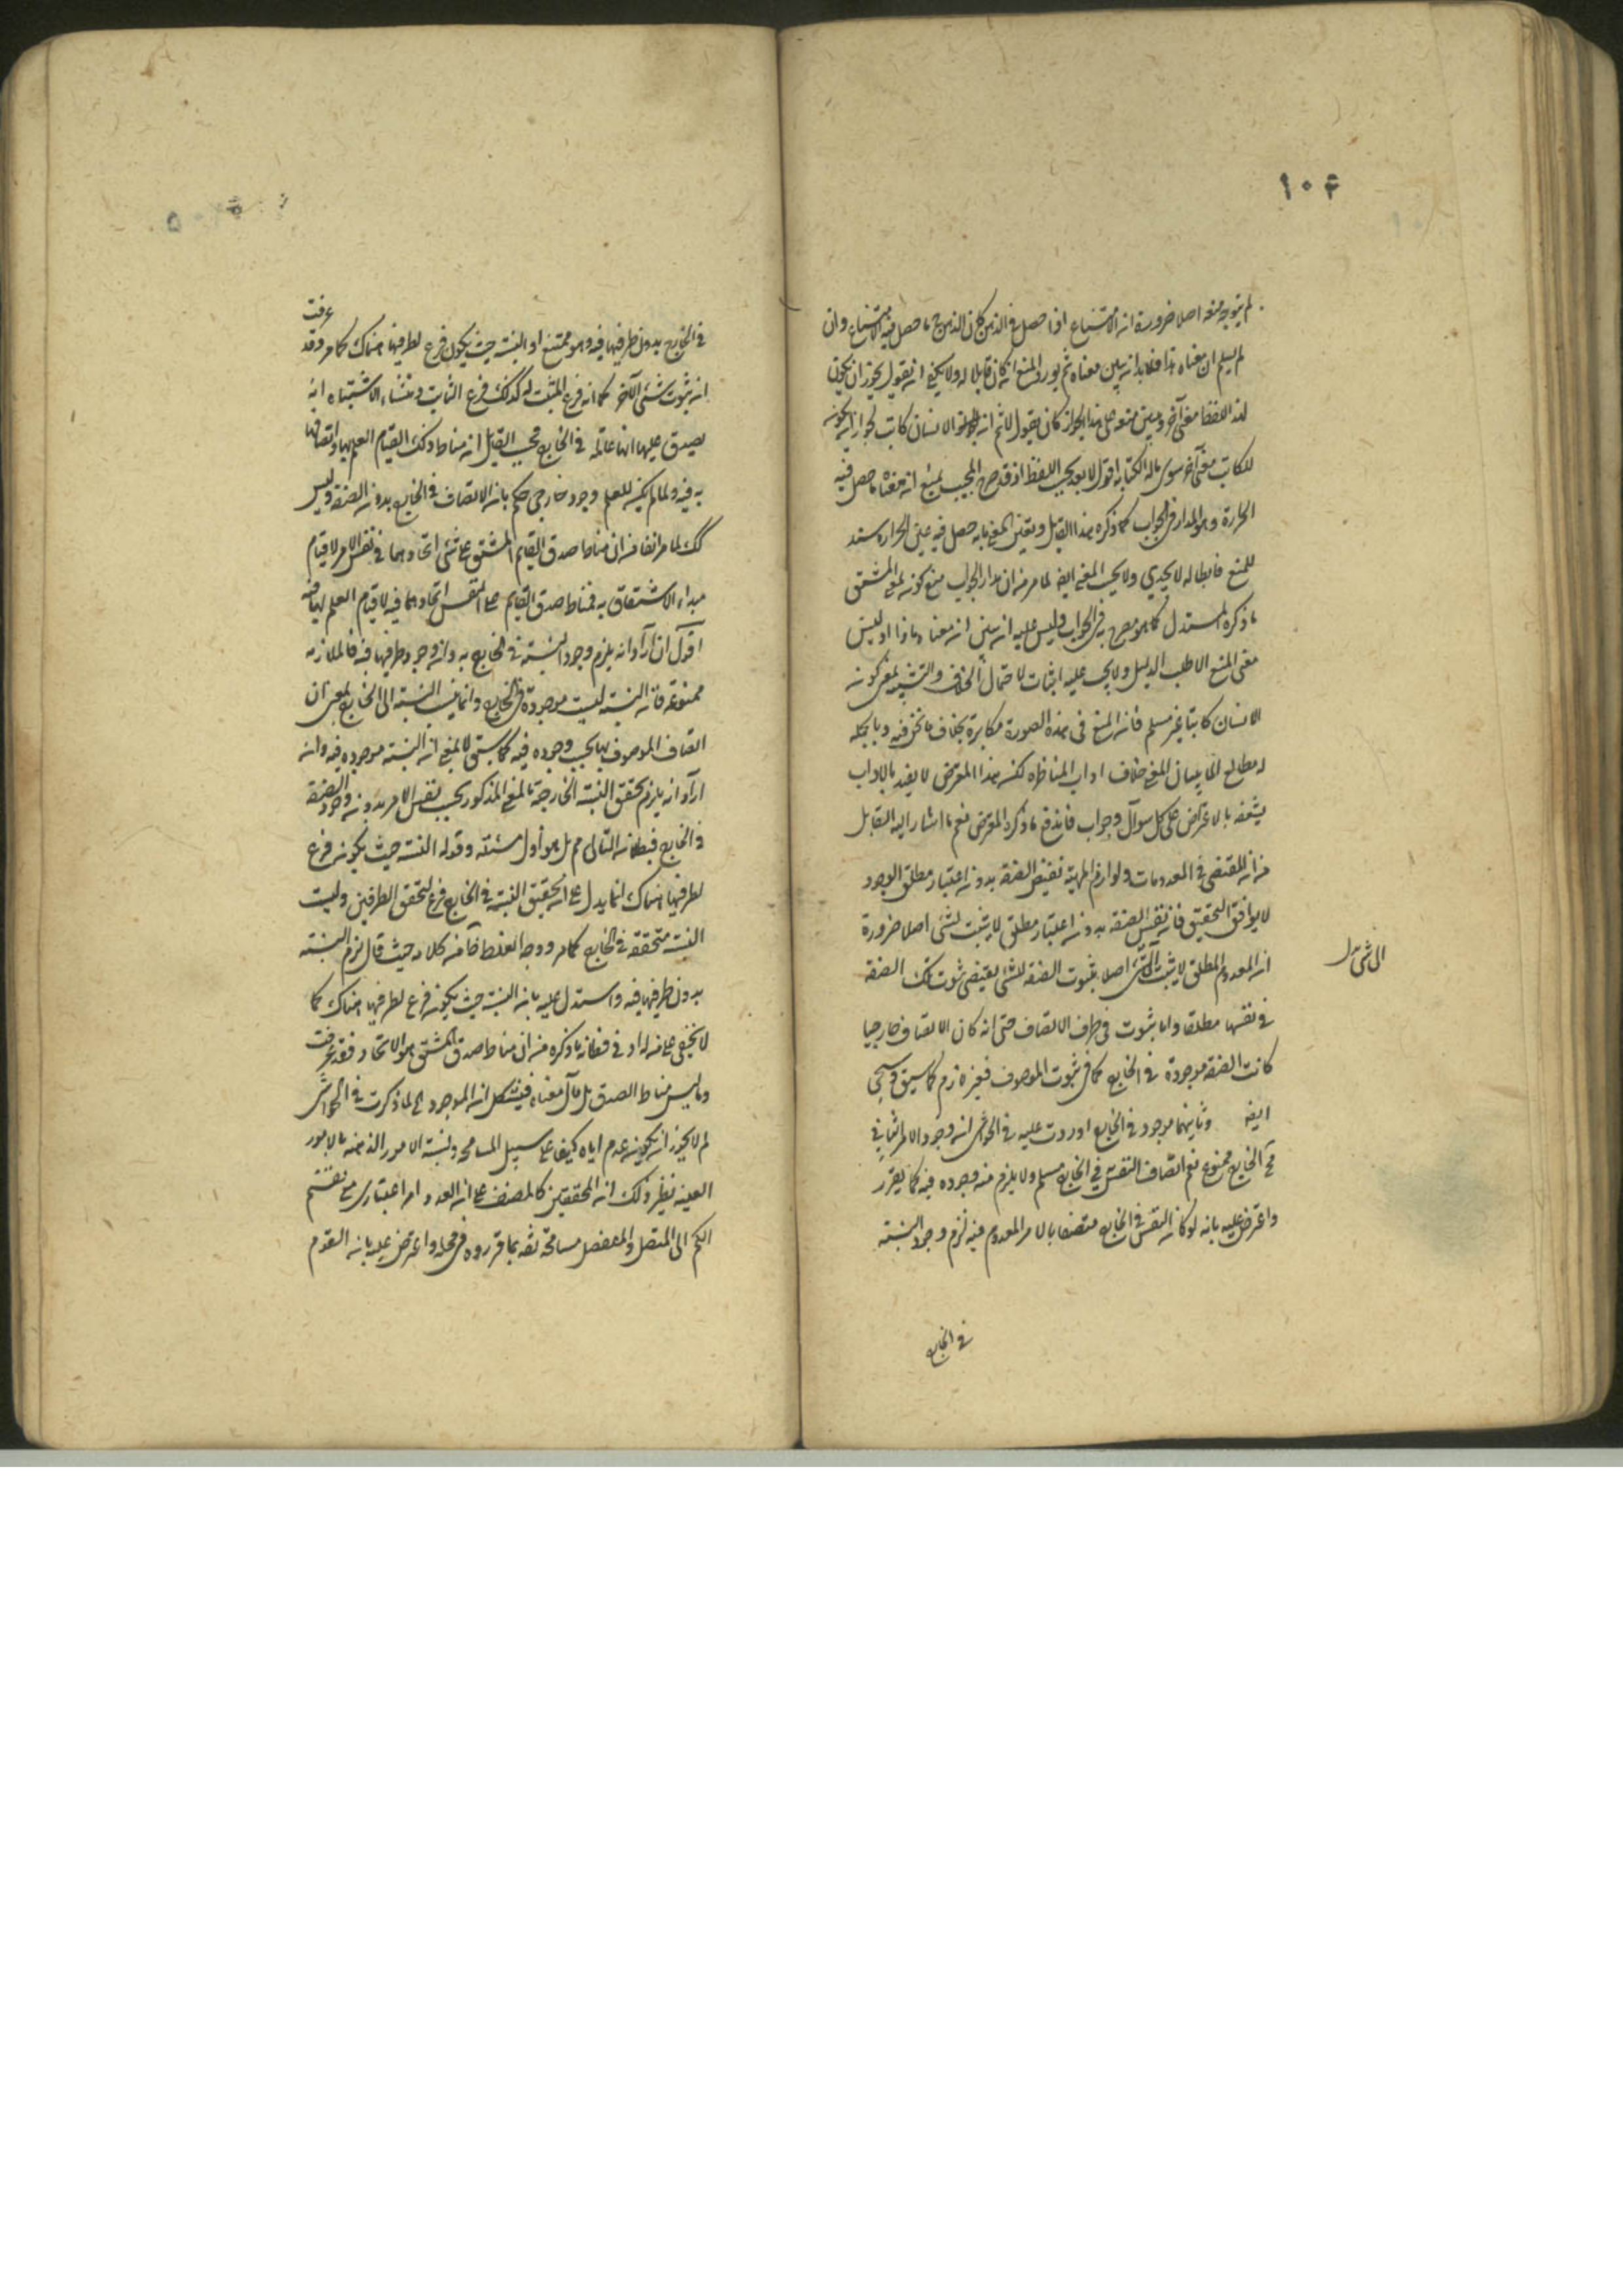 ١٠٤
لم يتوجه منعه اصلا ضرورة ان الامتناع اذا حصل في الذهن كان الذهن ما حصل فيه الامتناع وان
لم يسلم ان معناه هذا فلابد ان يبين معناه ثم يورد المنع ان كان قابلا له ولا يكفي ان يقول يجوز ان يكون
لهذا اللفظ معنى آخر ومبنى منعه على هذا الجواز كان يقول لا ثم ان الانسان كاتب لجواز ان يكون
للكاتب معنى آخر سوى ماله الكتابة اقول لا بعد بحسب اللفظ اذ قد صرح المجيب بمنع ان معناه ما حصل فيه
الحرارة وهو المدار في الجواب كما ذكره هذا القايل وتعيين المعنى بما به حصل فيه عين الحرارة سند
للمنع فابطاله لا يجدي ولا بحسب المعنى ايضا لما مر من ان مدار الجواب منع كونه معنى المشتق
ما ذكره المستدل كما هو مصرح به في الجواب وليس عليه ان يبين ان معناه ماذا اذ ليس
معنى المنع الا طلب الدليل ولا يجب عليه اثبات الاحتمال المخالف والتشبيه بمنع كون
الانسان كاتبا غير مسلم فان المنع في هذه الصورة مكابرة بخلاف ما نحن فيه وبالجملة
له مطالع المانع خلاف اداب المناظرة لكن هذا المعترض لا يقيد بالاداب
بشغفه بالاعتراض على كل سوآل وجواب فاندفع ما ذكره المعترض نعم ما اشار اليه القايل
من ان المقتضي في المعدومات ولوازم الماهية نفس الصفة بدون اعتبار مطلق الوجود
لا يوافق التحقيق فان نفس الصفة بدون اعتبار مطلق لا يثبت لشئ اصلا ضرورة
ان المعدوم المطلق لا يثبت لشئ اصلا بثبوت الصفة للشئ يقتضي ثبوت تلك الصفة
الى شئ
في نفسها مطلقا واما ثبوت في ظرف الاتصاف حتى انه كان الاتصاف خارجيا
كانت الصفة موجودة في الخارج كما في ثبوت الموصوف فغير لازم كما سبق وسيجئ
ايضا وثانيهما موجود في الخارج اوردت عليه في الحواشي ان وجود الامر الثاني
في الخارج ممنوع نعم اتصاف النفس في الخارج مسلم ولا يلزم منه وجوده فيه كما تقرر
واعترض عليه بانه لو كان النفس في الخارج متصفا بالامر المعدوم فيه لزم وجود النسبة
في الخارج
في الخارج بدون طرفيها فيه وهو ممتنع اذ النسبة حيث يكون فرع لطرفيها هناك كما مر وقد عرفت
ان ثبوت شئ لآخر كما انه فرع المثبت له كذلك فرع الثابت ومنشاء الاشتباه انه
يصدق عليها انها عالمة في الخارج فحسب القايل ان مناط ذلك القيام العلم بها واتصافها
به فيه ولما لم يكن للعلم وجود خارجي حكم بانه الاتصاف في الخارج بدون الصفة وليس
كك لما مر انفا من ان مناط صدق القايم المشتق على شئ اتحادهما في نفس الامر لا قيام
مبدا الاشتقاق به فمناط صدق القايم على النفس اتحادهما فيه لا قيام العلم بها فيه
اقول ان اراد انه يلزم وجود النسبة في الخارج بدون وجود طرفيها فيه فالملازمة
ممنوعة فان النسبة ليست موجودة في الخارج وانما ينسب النسبة الى الخارج بمعنى ان
اتصاف الموصوف بها بحسب وجوده فيه كما سبق لا بمعنى ان النسبة موجودة فيه وان
اراد انه يلزم تحقق النسبة الخارجية بالمعنى المذكور بحسب نفس الامر بدون وجود الصفة
في الخارج فبطلان التالي مم بل هو اول مسئلته وقوله النسبة حيث يكون فرع
لطرفيها هناك انما يدل على ان تحقق النسبة في الخارج فرع لتحقق الطرفين وليست
النسبة متحققة في الخارج كما مر ووجه الغلط ظا من كلامه حيث قال لزم النسبة
بدون طرفيها فيه واستدل عليه بانه النسبة حيث يكون فرع لطرفيها هناك كما
لا يخفى على من له ادنى فطانة ما ذكره من ان مناط صدق المشتق هو الاتحاد فقد عرفت
وما ليس مناط الصدق بل مآل معناه فيشكل ان الموجود الخ لما ذكرت في الحواشي
لم لا يجوز ان يكون عدم اياه كيفا على سبيل المسامحة ونسبة الامور الذهنية بالامور
العينية نظير ذلك ان المحققين كالمصنف على ان العدد امر اعتباري مع تقسيم
الكم الى المتصل والمنفصل مسامحة ثقة بما قرروه في محله واعترض عليه بانه القوم